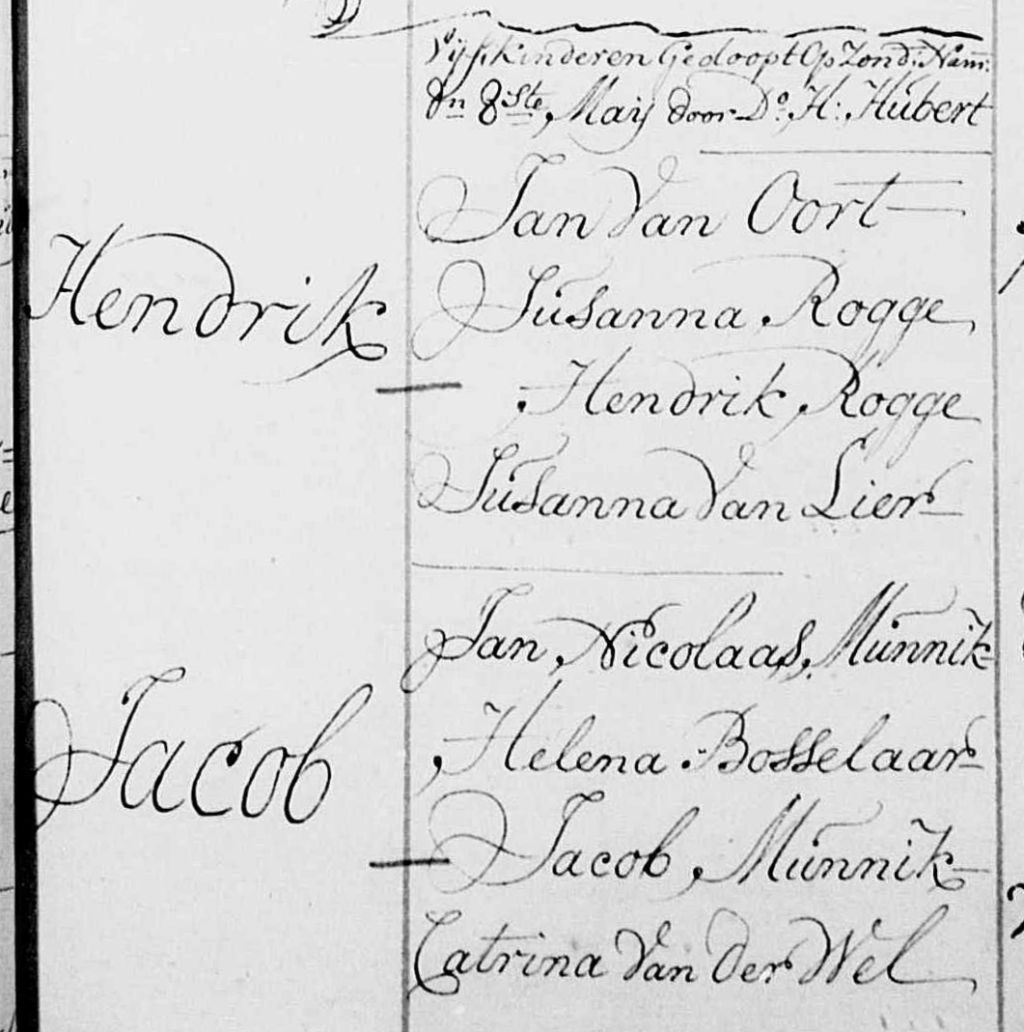 Vijf kinderen Gedoopt Op Zond: Nam:
dn 8ste Maij door Do. H: Hubert
Jan Van Oort
Hendrik
Susanna Rogge
Hendrik Rogge
Susanna Van Lier
Jan Nicolaas Munnik
Jacob
Helena Bosselaar
Jacob Munnik
Catrina Van der Wel